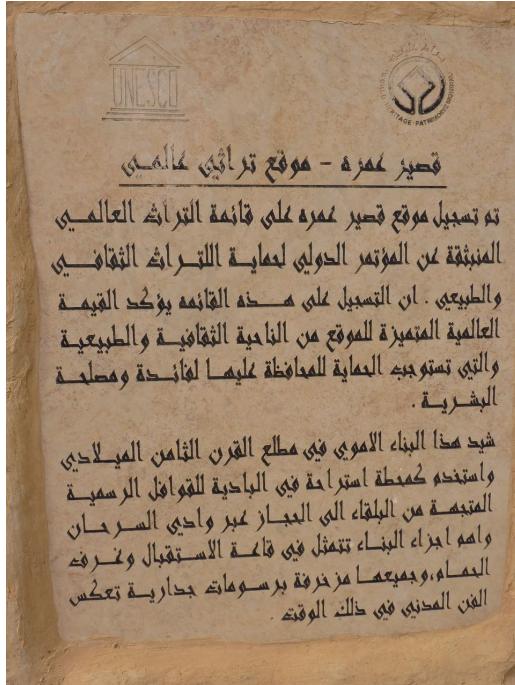 UNESCO
HERITAGE · PATRIMOINE MONDIAL
قصير عمره - موقع تراثي عالمي
تم تسجيل موقع قصير عمره على قائمة التراث العالمي
المنبثقة عن المؤتمر الدولي لحماية اللتراث الثقافي
والطبيعي . ان التسجيل على هذه القائمه يؤكد القيمة
العالمية المتميزة للموقع من الناحية الثقافية والطبيعية
والتي تستوجب الحماية للمحافظة عليها لفائدة ومصلحة
البشرية .
شيد هذا البناء الاموي في مطلع القرن الثامن الميلادي
واستخدم كمحطة استراحة في البادية للقوافل الرسمية
المتجهة من البلقاء الى الحجاز عبر وادي السرحان
واهم اجزاء البناء تتمثل في قاعة الاستقبال وغرف
الحمام،وجميعها مزخرفة برسومات جدارية تعكس
الفن المدني في ذلك الوقت .